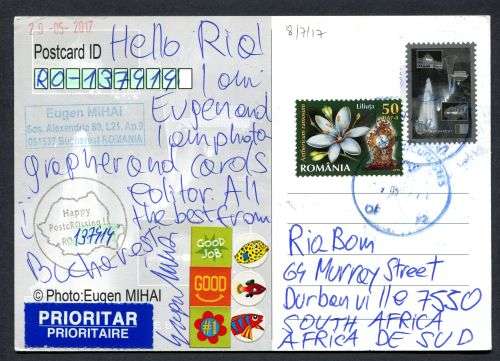 29-05-2017
Postcard ID
RO-137414
Eugen MIHAI
Sos. Alexandria 80, L21, Ap.9
051537 Bucharest ROMANIA
Hello Ria!
I am
Eugen and
I am photo
grapher and cards
editor. All
the best from
Bucharest.
Happy
PostcROssing
137414
© Photo:Eugen MIHAI
PRIORITAR
PRIORITAIRE
GOOD
JOB
GOOD
#1
8/7/17
Liliuța
50
ROMÂNIA
Ria Bom
64 Murray Street
Durbanville 7550
SOUTH AFRICA
AFRICA DE SUD